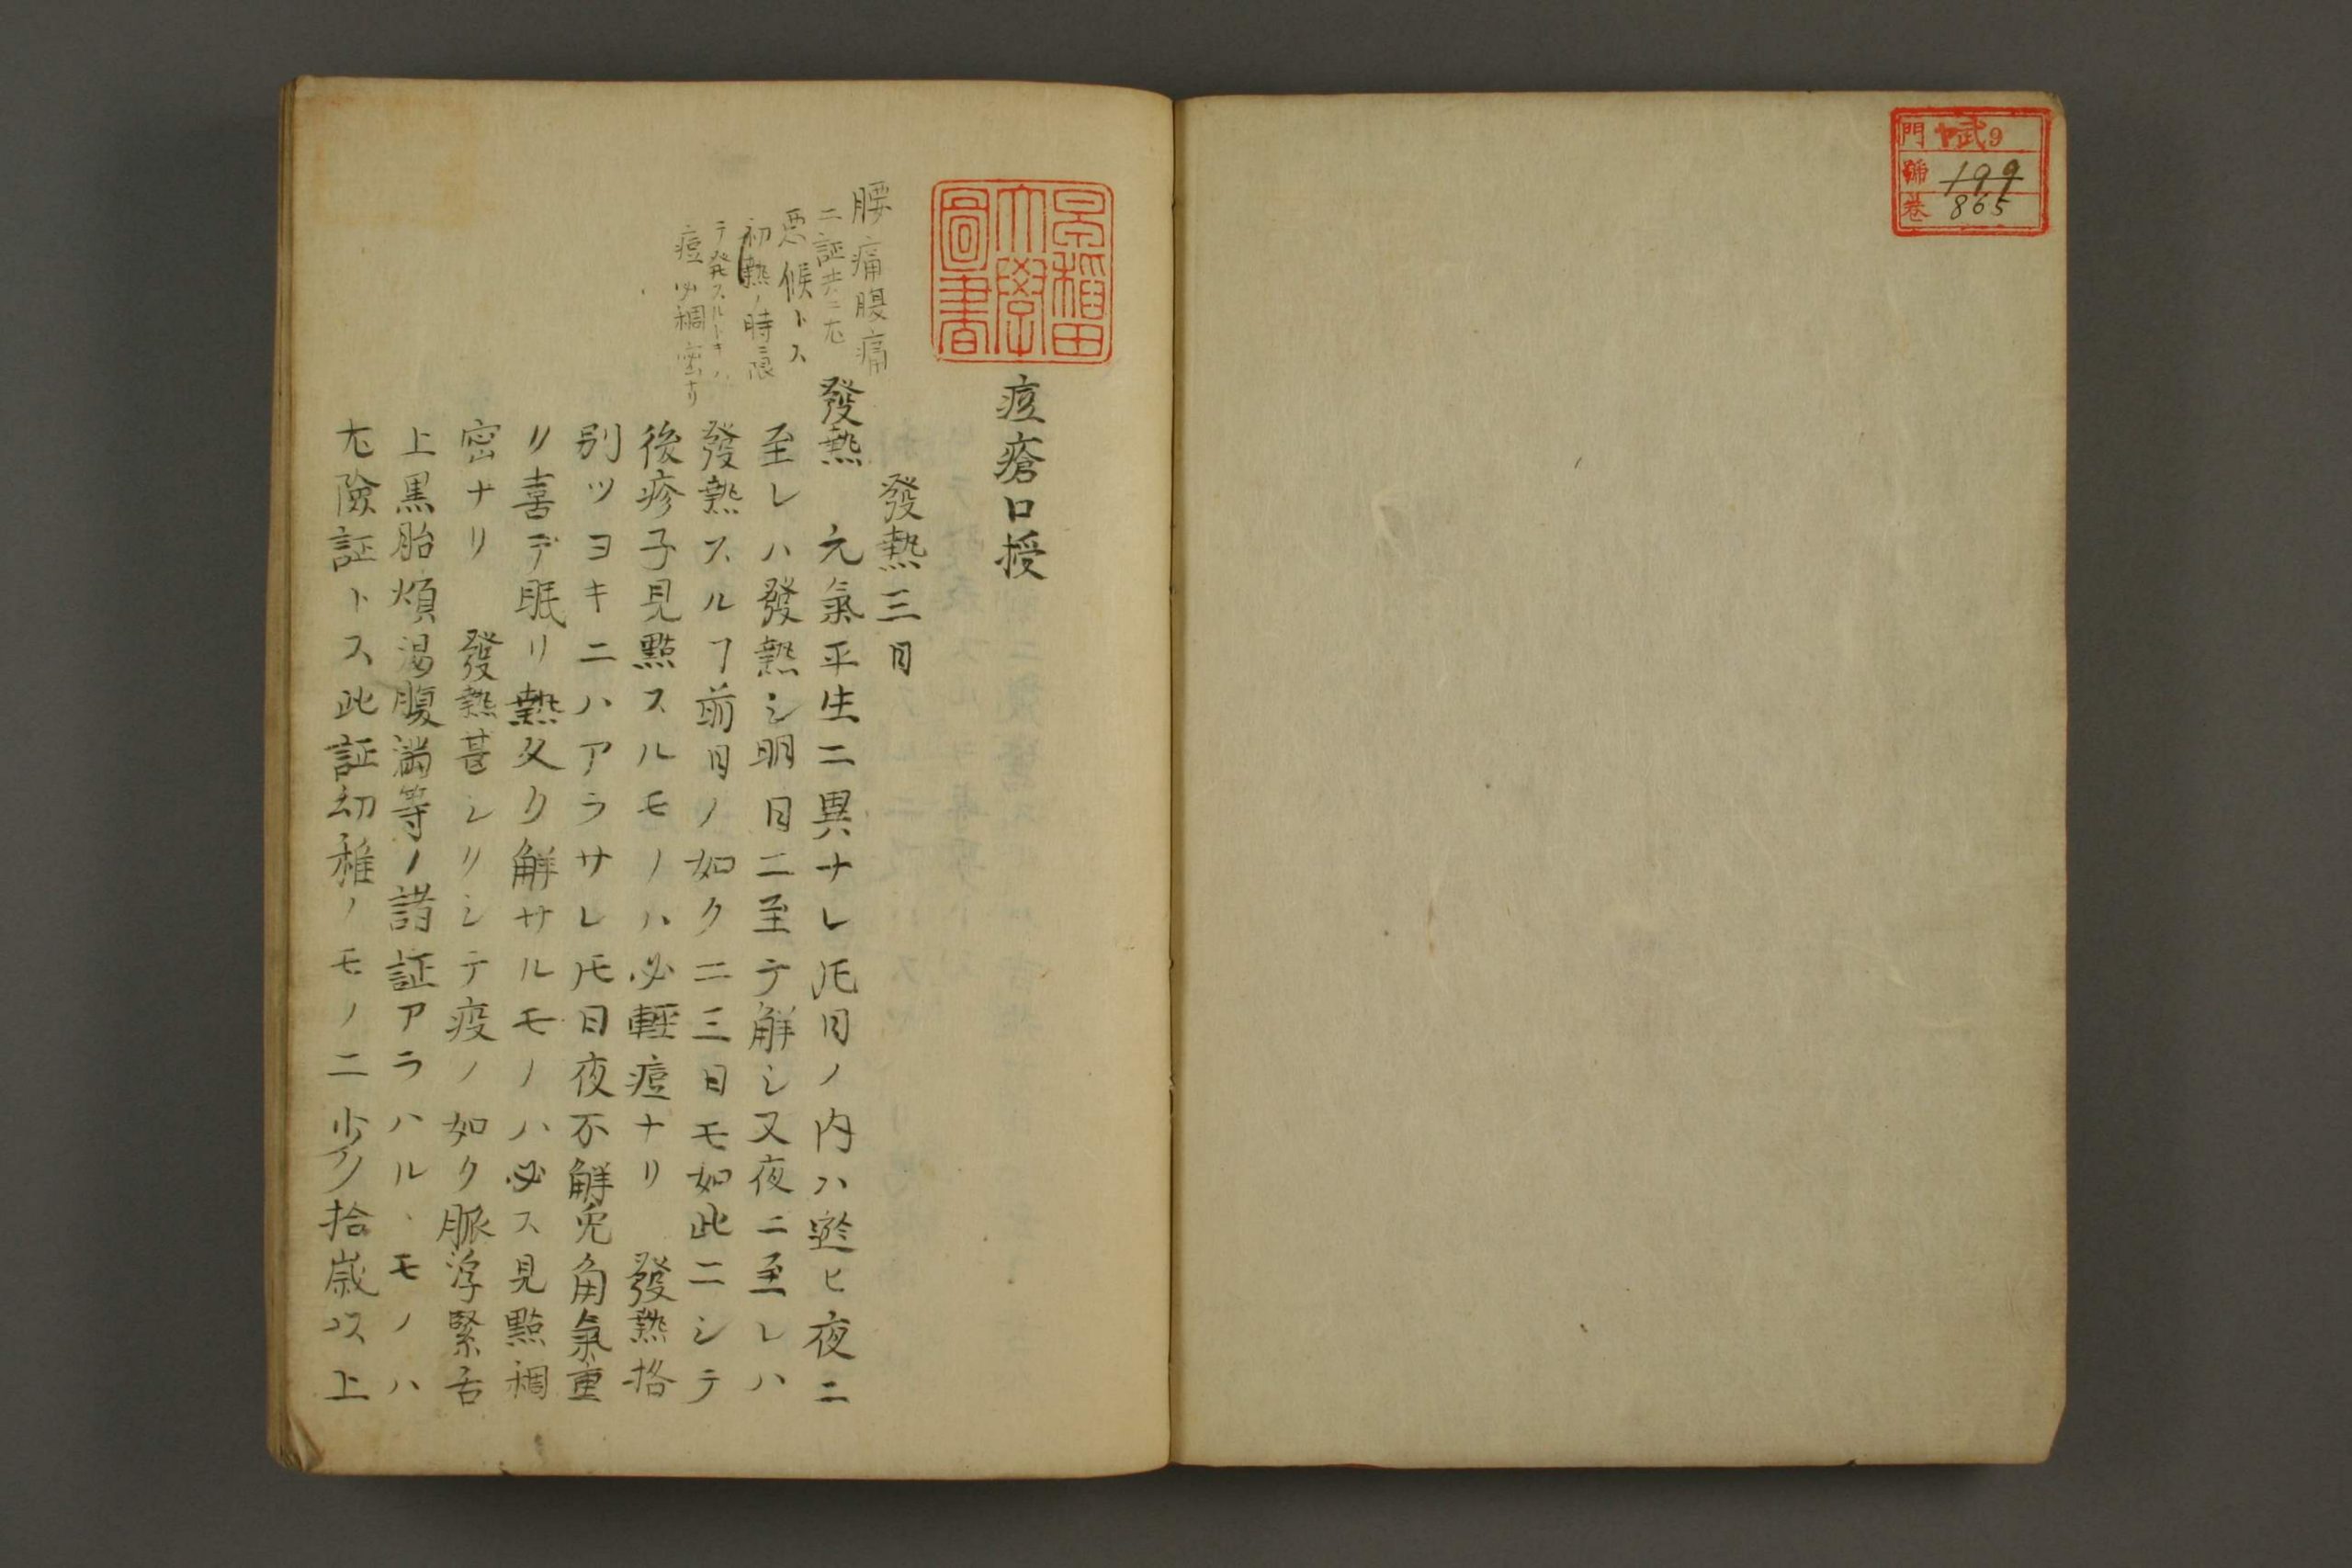 門 武9
號 199
卷 865
早稲田
大學
圖書
痘瘡口授
發熱三日
發熱 元氣平生ニ異ナレ𪜈日ノ内ハ遊ヒ夜ニ
至レハ發熱シ明日ニ至テ解シ又夜ニ至レハ
發熱スルヿ前日ノ如ク二三日モ如此ニシテ
後疹子見點スルモノハ必輕痘ナリ 發熱格
別ツヨキニハアラサレ𪜈日夜不解兎角氣重
リ喜デ眠リ熱久ク解サルモノハ必ス見點稠
密ナリ 發熱甚シリシテ疫ノ如ク脈浮緊舌
上黒胎煩渇腹満等ノ諸証アラハルヽモノハ
尤險証トス此証幼稚ノモノニ少ク拾歳以上
腰痛腹痛
二証共ニ尤
悪候トス
初熱ノ時
テ発スルトキハ
痘必稠密ナリ